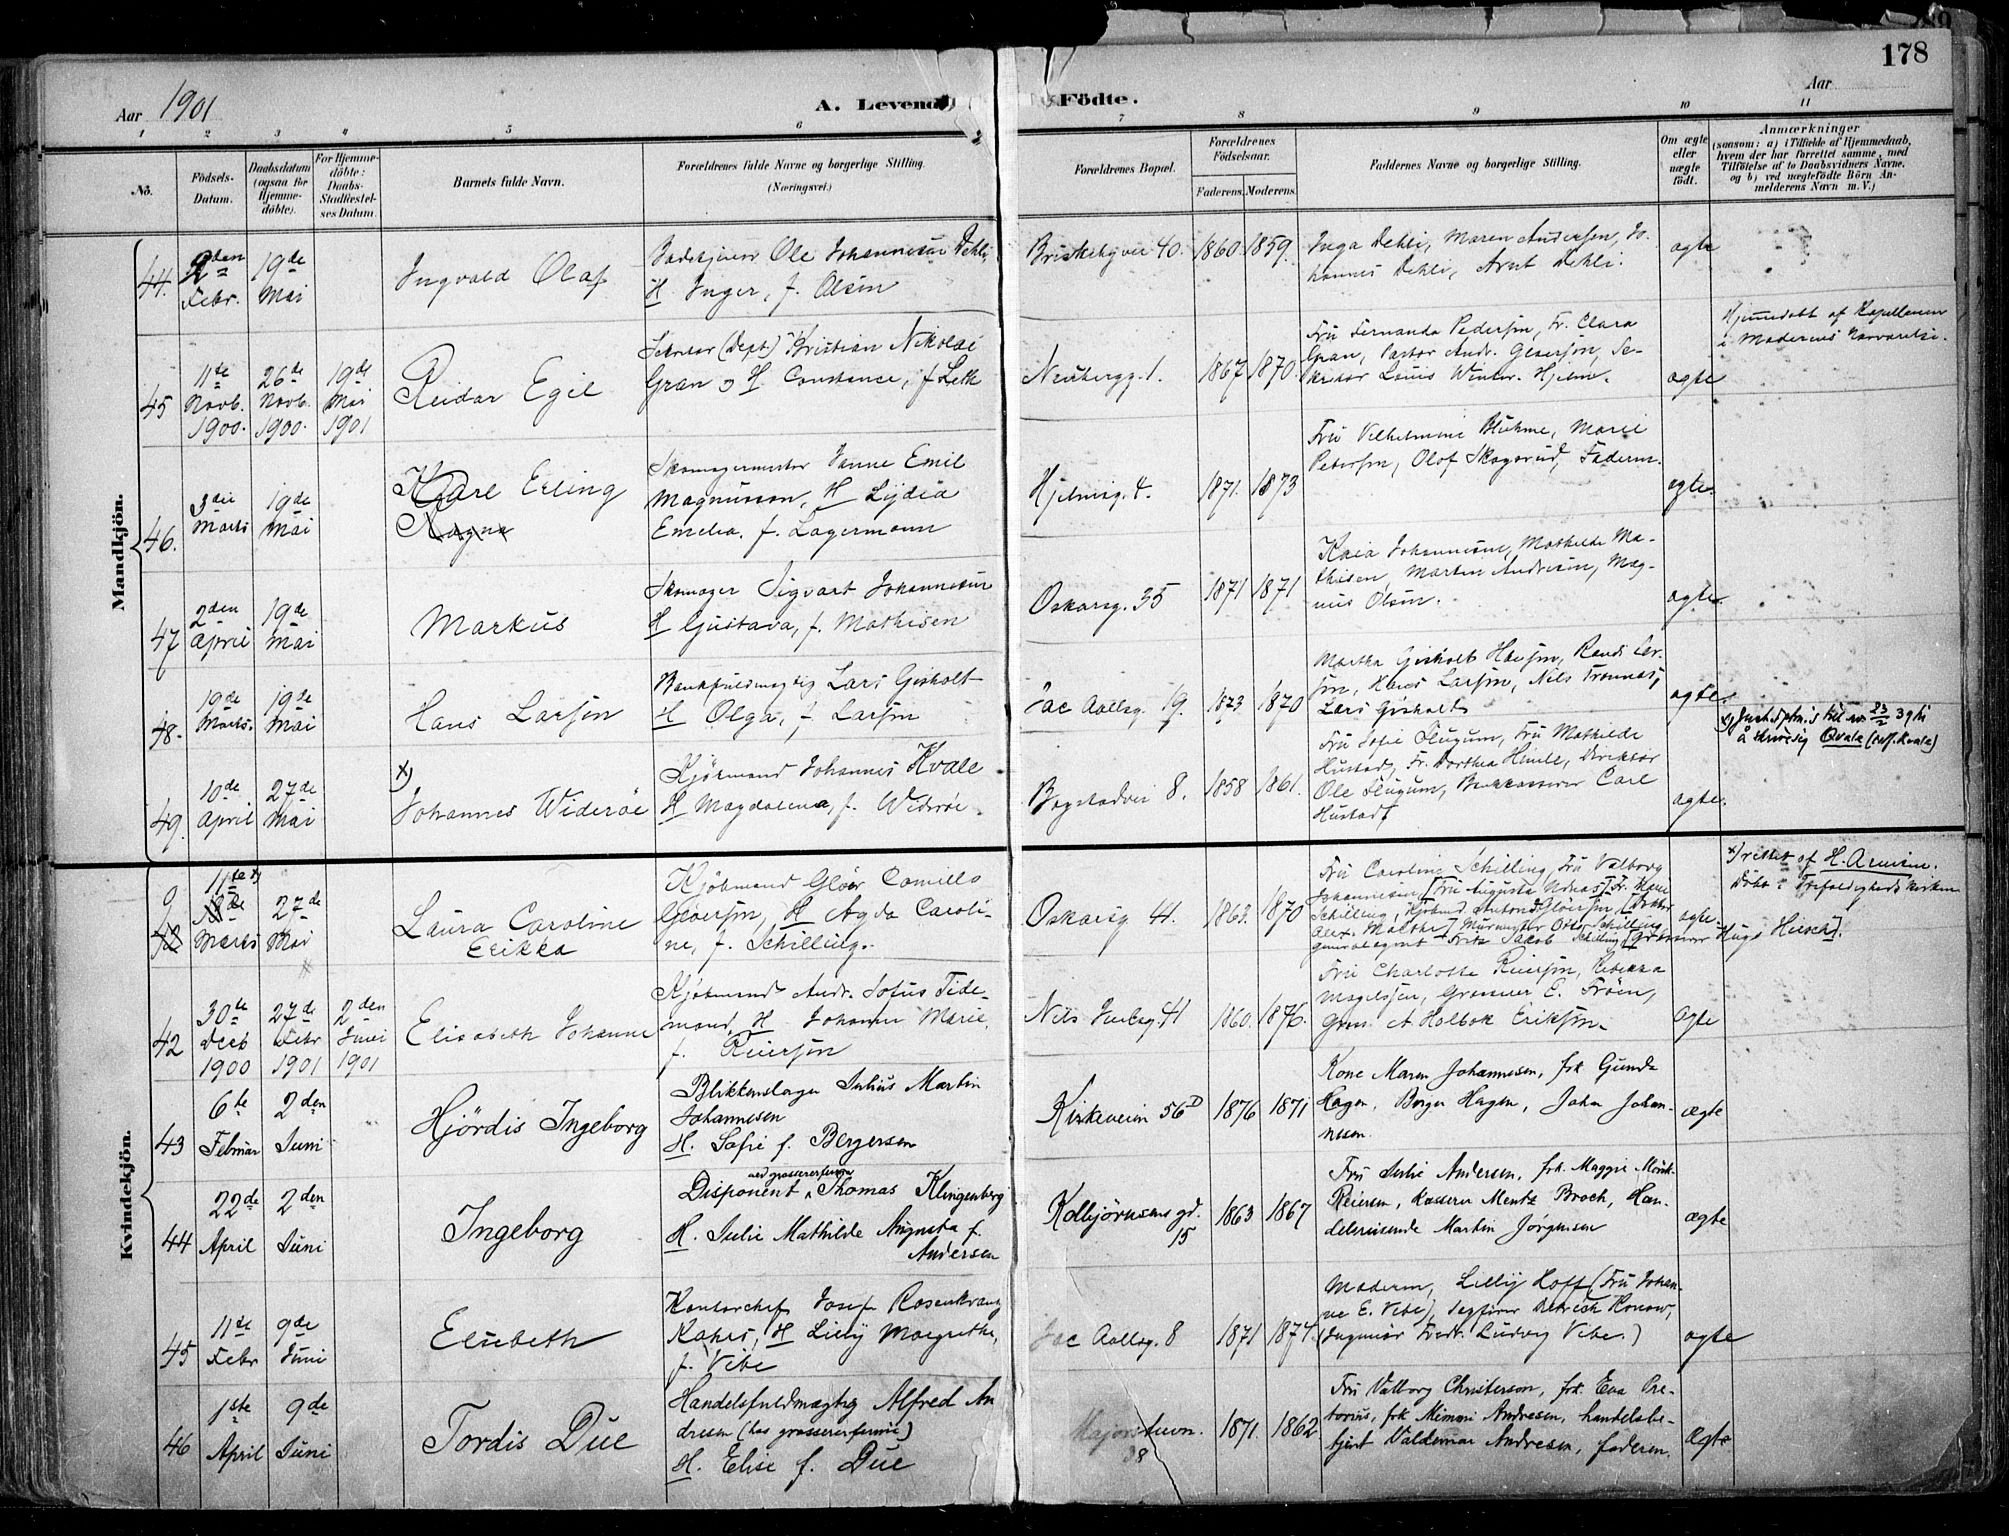 178
Aar 1901
A. Levende Födte.
Aar
1 2 3 4 5 6 7 8 9 10 11
No.
Födsels-
Datum.
Daabsdatum
(ogsaa for
Hjemme-
döbte).
For Hjemme-
döbte:
Daabs-
Stadfæstel-
ses Datum.
Barnets fulde Navn.
Forældrenes fulde Navne og borgerlige Stilling.
(Næringsvei.)
Forældrenes Bopæl.
Forældrenes
Födselsaar.
Faderens. Moderens.
Faddernes Navne og borgerlige Stilling.
Om ægte
eller
uægte
födt.
Anmærkninger
(saasom: a) i Tilfælde af Hjemmedaab,
hvem der har forrettet samme, med
Tilföielse af to Daabsvidners Navne,
og b) ved uægtefödte Börn An-
melderens Navn m. V.)
Mandkjön.
44. 2den Febr. 19de Mai
Ingvald Olaf
Ole Johannesen Dehli,
H Inger, f. Olsen
Briskebyvei 40. 1860. 1859.
Inga Dehli, Maren Andersen, Jo-
hannes Dehli, Arnt Dehli.
ægte
45 11te Novb. 1900. 26de Novb. 1900. 19de Mai 1901
Reidar Egil
Sekretær (Dept) Kristian Nikolai
Gran og H Constance, f Leth
Neubergg. 1. 1867 1870
Fru Fernanda Pedersen, Fr. Clara
Gran, Pastor Andr. Gloersen, Se-
kretær Louis Winter-Hjelm.
ægte
Hjemmedøbt af Kapellanen
i Moderens Nærværelse.
46. 3die Marts 19de Mai
Kaare Erling
Ragna
Skomagermester Janne Emil
Magnusson, H Lydia
Emelia, f. Lagermann
Hjelmsg. 4. 1871. 1873
Fru Vilhelmine Bluhme, Marie
Petersen, Olof Skogsrud, Faderen.
ægte.
47 2den April 19de Mai
Markus
Skomager Sigvart Johannesen
H Gustava, f. Mathisen
Oskarsg. 35 1871 1871
Kaia Johannesen, Mathilde Ma-
thisen, Martin Andresen, Mag-
nus Olsen.
ægte.
48. 19de Marts. 19de Mai
Hans Larsen
Bankfuldmægtig Lars Gisholt
H Olga, f. Larsen
Jac Aallsg. 19. 1873 1870
Martha Gisholt Hansen, Randi Lar-
sen, Hans Larsen, Nils Trønnes,
Lars Gisholt
ægte.
49. 10de April 27de Mai
x)
Johannes Widerøe
Kjøbmand Johannes Kvale
H Magdalena, f. Widerøe
Bogstadvei 8. 1858 1861.
Fru Sofie Flugum, Fru Mathilde
Hustad, Fr. Dorthea Heide, Direktør
Ole Flugum, Bankkasserer Carl
Hustad
ægte.
x) Just.dptm.s tel. av 23/2 39 til
å skrive sig Qvale (self. Kvale)
Kvindekjön.
9 11te x) Marts 27de Mai
Laura Caroline
Erikka
Kjøbmand Gløer Camillo
Gloersen, H Agda Caroli-
ne, f. Schilling.
Oskarsg 41. 1863. 1870
Fru Caroline Schilling, Fru Valborg
Johannesen, [Fru Augusta Ursnes] Fr. Marie
Schilling, Kjøbmd Antond Gloersen, [Doktor
Alex. Malthe] Murmester Otto Schilling,
generalagent Fritz Jakob Schilling [Grosserer Hugo Hirsch].
ægte.
x) rettet af H. Arnesen.
Døbt i Trefoldighedskirken
42 30te Decb 1900 27de Febr 1901 2den Juni 1901
Elisabeth Johanne
Kjøbmand Andr. Sofus Tide-
mand, H Johanne Marie,
f. Reiersen
Nils Juelsg 41 1860. 1876.
Fru Charlotte Reiersen, Rebekka
Magelssen, Grosserer E. Frøen,
Gross. A Holbok Eriksen.
ægte
43 6te Februar 2den Juni
Hjördis Ingeborg
Blikkenslager Julius Martin
Johannesen
H. Sofie f. Bergersen
Kirkeveien 56D 1876 1871
Kone Maren Johannesen, frk Gunda
Hagen, Borger Hagen, Johan Johan-
nesen.
ægte
44 22de April 2den Juni
Ingeborg
ved grossererfirma
Disponent Thomas Klingenberg
H. Julie Mathilde Augusta f.
Andersen
Kolbjørnsens gd. 15 1863 1867
Fru Julie Andersen, frk. Maggie Mönk-
Reiersen, kasserer Mentz Broch, Han-
delsreisende Martin Jørgensen
ægte
45 11te Febr 9de Juni
Elsebeth
Kontorchef Josef Rosenkrantz
Kahrs, H Lilly Margrethe,
f. Vibe
Jac Aallsg. 8 1871 1874.
Moderen, Lilly Hoff (Fru Johan-
ne E. Vibe), Sagfører Didrich Konow,
(Ingeniør Fredr. Ludvig Vibe.)
ægte
46 1ste April 9de Juni
Tordis Due
Handelsfuldmægtig Alfred An
dresen (hos grossererfirma)
H. Elise f. Due
Majorstuvn. 38 1871. 1862
Fru Valborg Christerson, frk. Eva Pre-
torius, frk Mimmi Andresen, handelsbe-
tjent Valdemar Andresen, faderen.
Ægte